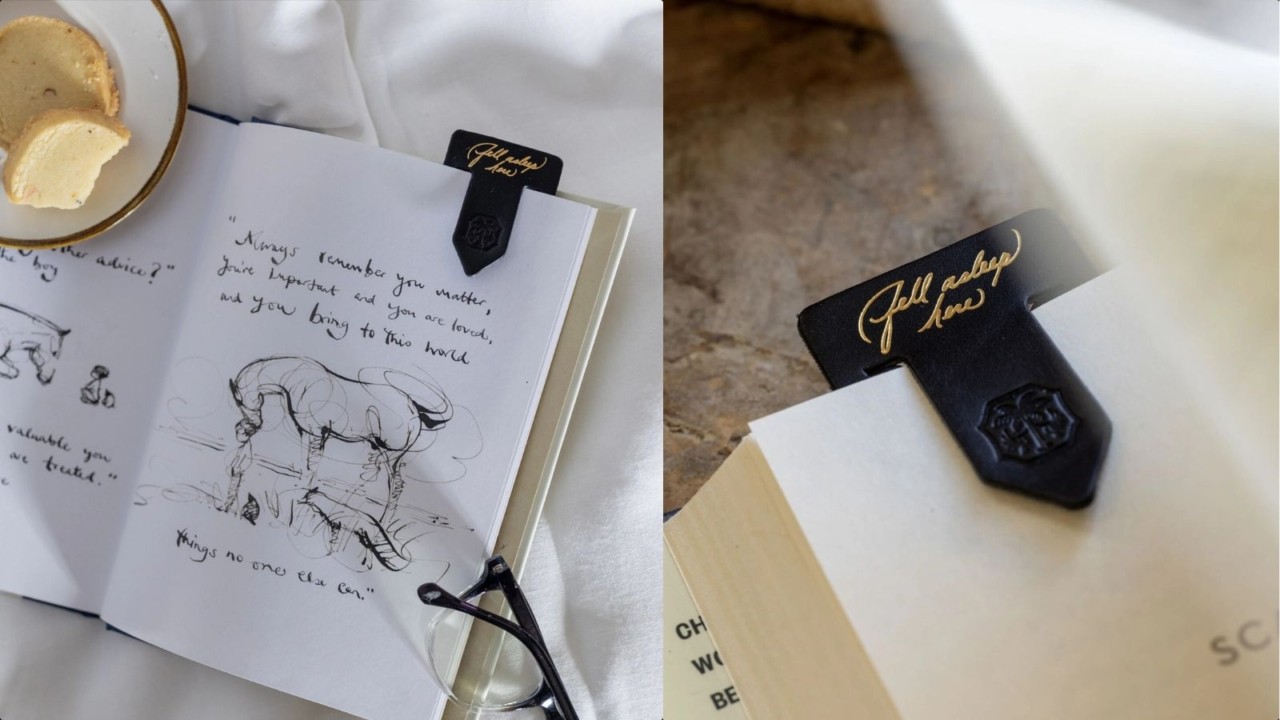 advice?"
the boy
valuable you
are treated."
Fell asleep
here
"Always remember you matter,
you're important and you are loved,
and you bring to this world
things no one else can."
Fell asleep
here
CH
WO
BE
SC